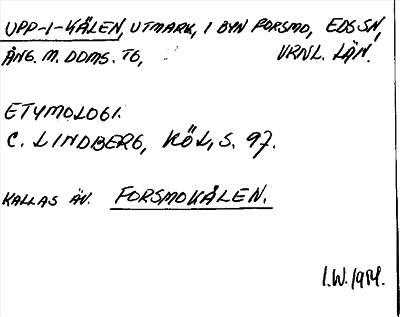 UPP-I-KÅLEN, UTMARK, I BYN FORSMO, EDS SN,
ÅNG. M. DOMS. TG, VRNL. LÄN.
ETYMOLOGI.
C. LINDBERG, KÖL, S. 97.
KALLAS ÄV. FORSMOKÅLEN.
I.W. 1984.